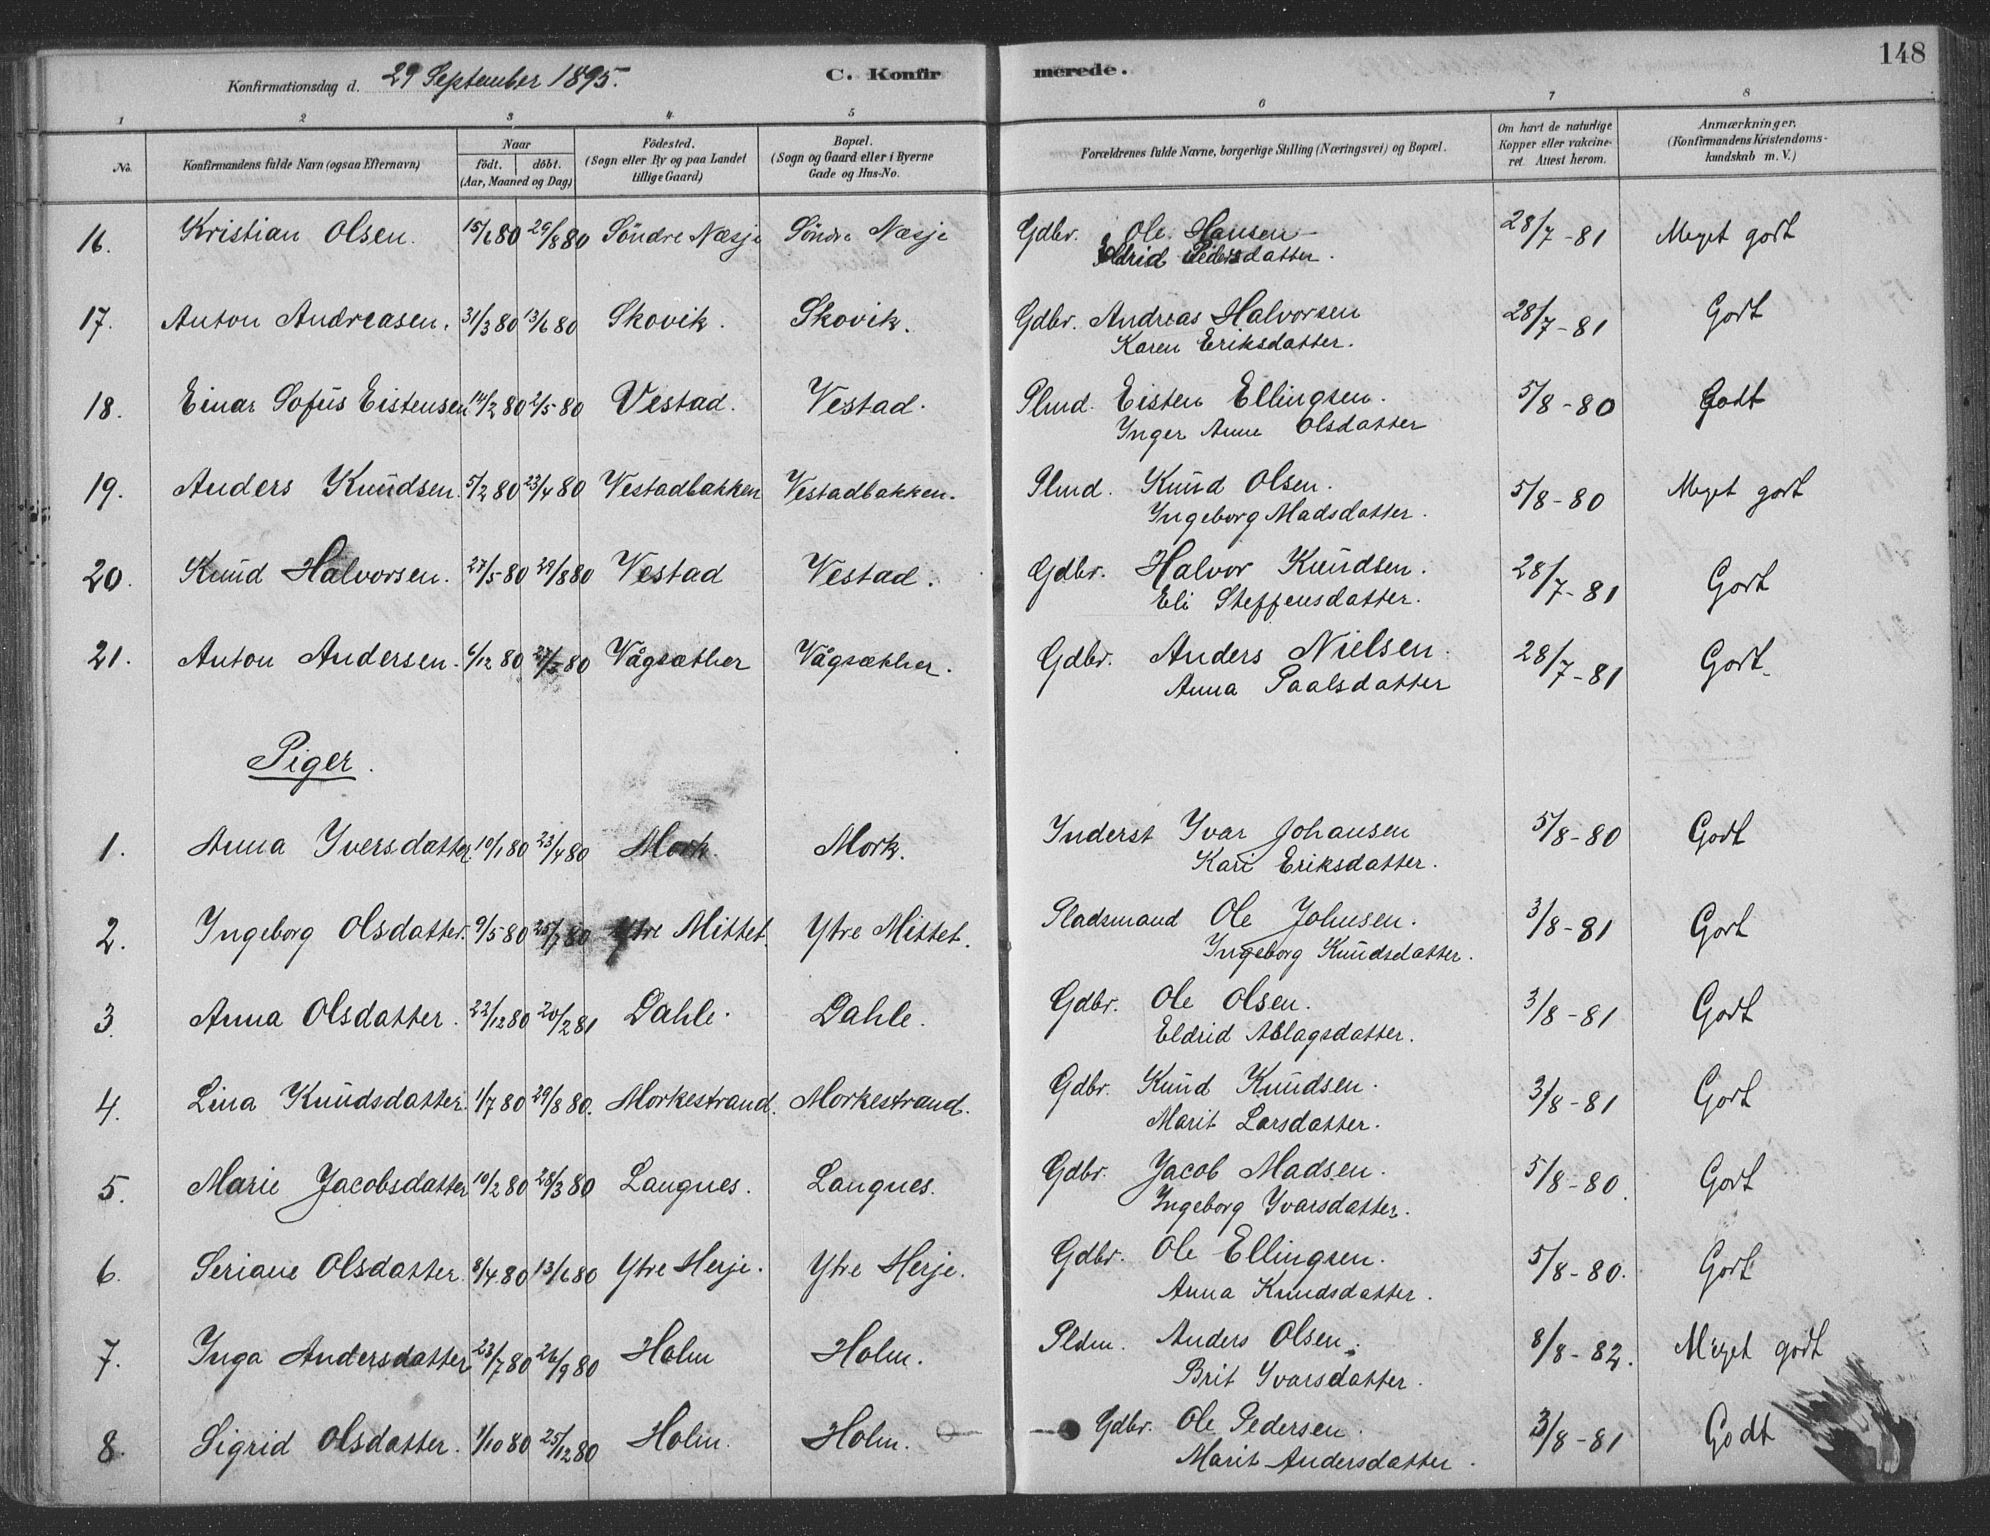 148
Konfirmationsdag d. 29 September 1895. C. Konfirmerede.
1 2 3 4 5 6 7 8
No. Konfirmandens fulde Navn (ogsaa Efternavn) Naar födt. döbt. (Aar, Maaned og Dag) Födested. (Sogn eller By og paa Landet tillige Gaard) Bopæl. (Sogn og Gaard eller i Byerne Gade og Hus-No. Forældrenes fulde Navne, borgerlige Stilling (Næringsvei) og Bopæl. Om havt de naturlige Kopper eller vakcineret. Attest herom. Anmærkninger. (Konfirmandens Kristendomskundskab m. V.)
16. Kristian Olsen. 15/6 80 29/8 80 Söndre Næsje Söndre Næsje Gdbr. Ole Hansen 28/7-81 Meget godt
Eldrid Pedersdatter.
17. Anton Andreasen. 31/3 80 13/6 80 Skovik. Skovik. Gdbr. Andreas Halvorsen 28/7-81 Godt
Karen Eriksdatter.
18. Einar Sofus Eistensen 14/2 80 2/5 80 Vestad. Vestad. Plmd. Eisten Ellingsen. 5/8-80 Godt
Inger Anne Olsdatter
19. Anders Knudsen. 5/2 80 23/4 80 Vestadbakken Vestadbakken. Plmd. Knud Olsen. 5/8-80 Meget godt
Ingeborg Madsdatter.
20. Knud Halvorsen. 27/5 80 29/8 80 Vestad Vestad. Gdbr. Halvor Knudsen. 28/7-81 Godt
Eli Steffensdatter.
21. Anton Andersen. 6/12 80 80 Vågsæther Vågsæther. Gdbr. Anders Nielsen. 28/7-81 Godt
Anna Paalsdatter
Piger.
1. Anna Yversdatter. 10/1 80 23/4 80 Mork. Mork. Inderst Yvar Johansen 5/8-80 Godt
Kari Eriksdatter.
2. Ingeborg Olsdatter. 9/5 80 25/7 80 Ytre Mittet. Ytre Mittet. Pladsmand Ole Johnsen. 3/8-81 Godt
Ingeborg Knudsdatter.
3. Anna Olsdatter. 22/12 80 20/2 81 Dahle. Dahle. Gdbr. Ole Olsen. 3/8-81 Godt
Eldrid Aslagsdatter.
4. Lina Knudsdatter. 1/7 80 29/8 80. Morkestrand. Morkestrand. Gdbr. Knud Knudsen. 3/8-81 Godt
Marit Larsdatter.
5. Marie Jacobsdatter 10/2 80 28/3 80 Langnes. Langnes. Gdbr. Jacob Madsen. 5/8-80. Godt
Ingeborg Yvarsdatter.
6. Seriane Olsdatter. 8/4 80 13/6 80 Ytre Herje. Ytre Herje. Gdbr. Ole Ellingsen. 5/8-80. Godt
Anna Knudsdatter.
7. Inga Andersdatter 23/7 80 26/9 80 Holm Holm. Pldm. Anders Olsen. 8/8-82. Meget godt
Brit Yvarsdatter.
8. Sigrid Olsdatter. 1/10 80 25/12 80 Holm. Holm. Gdbr. Ole Pedersen. 3/8-81 Godt
Marit Andersdatter.